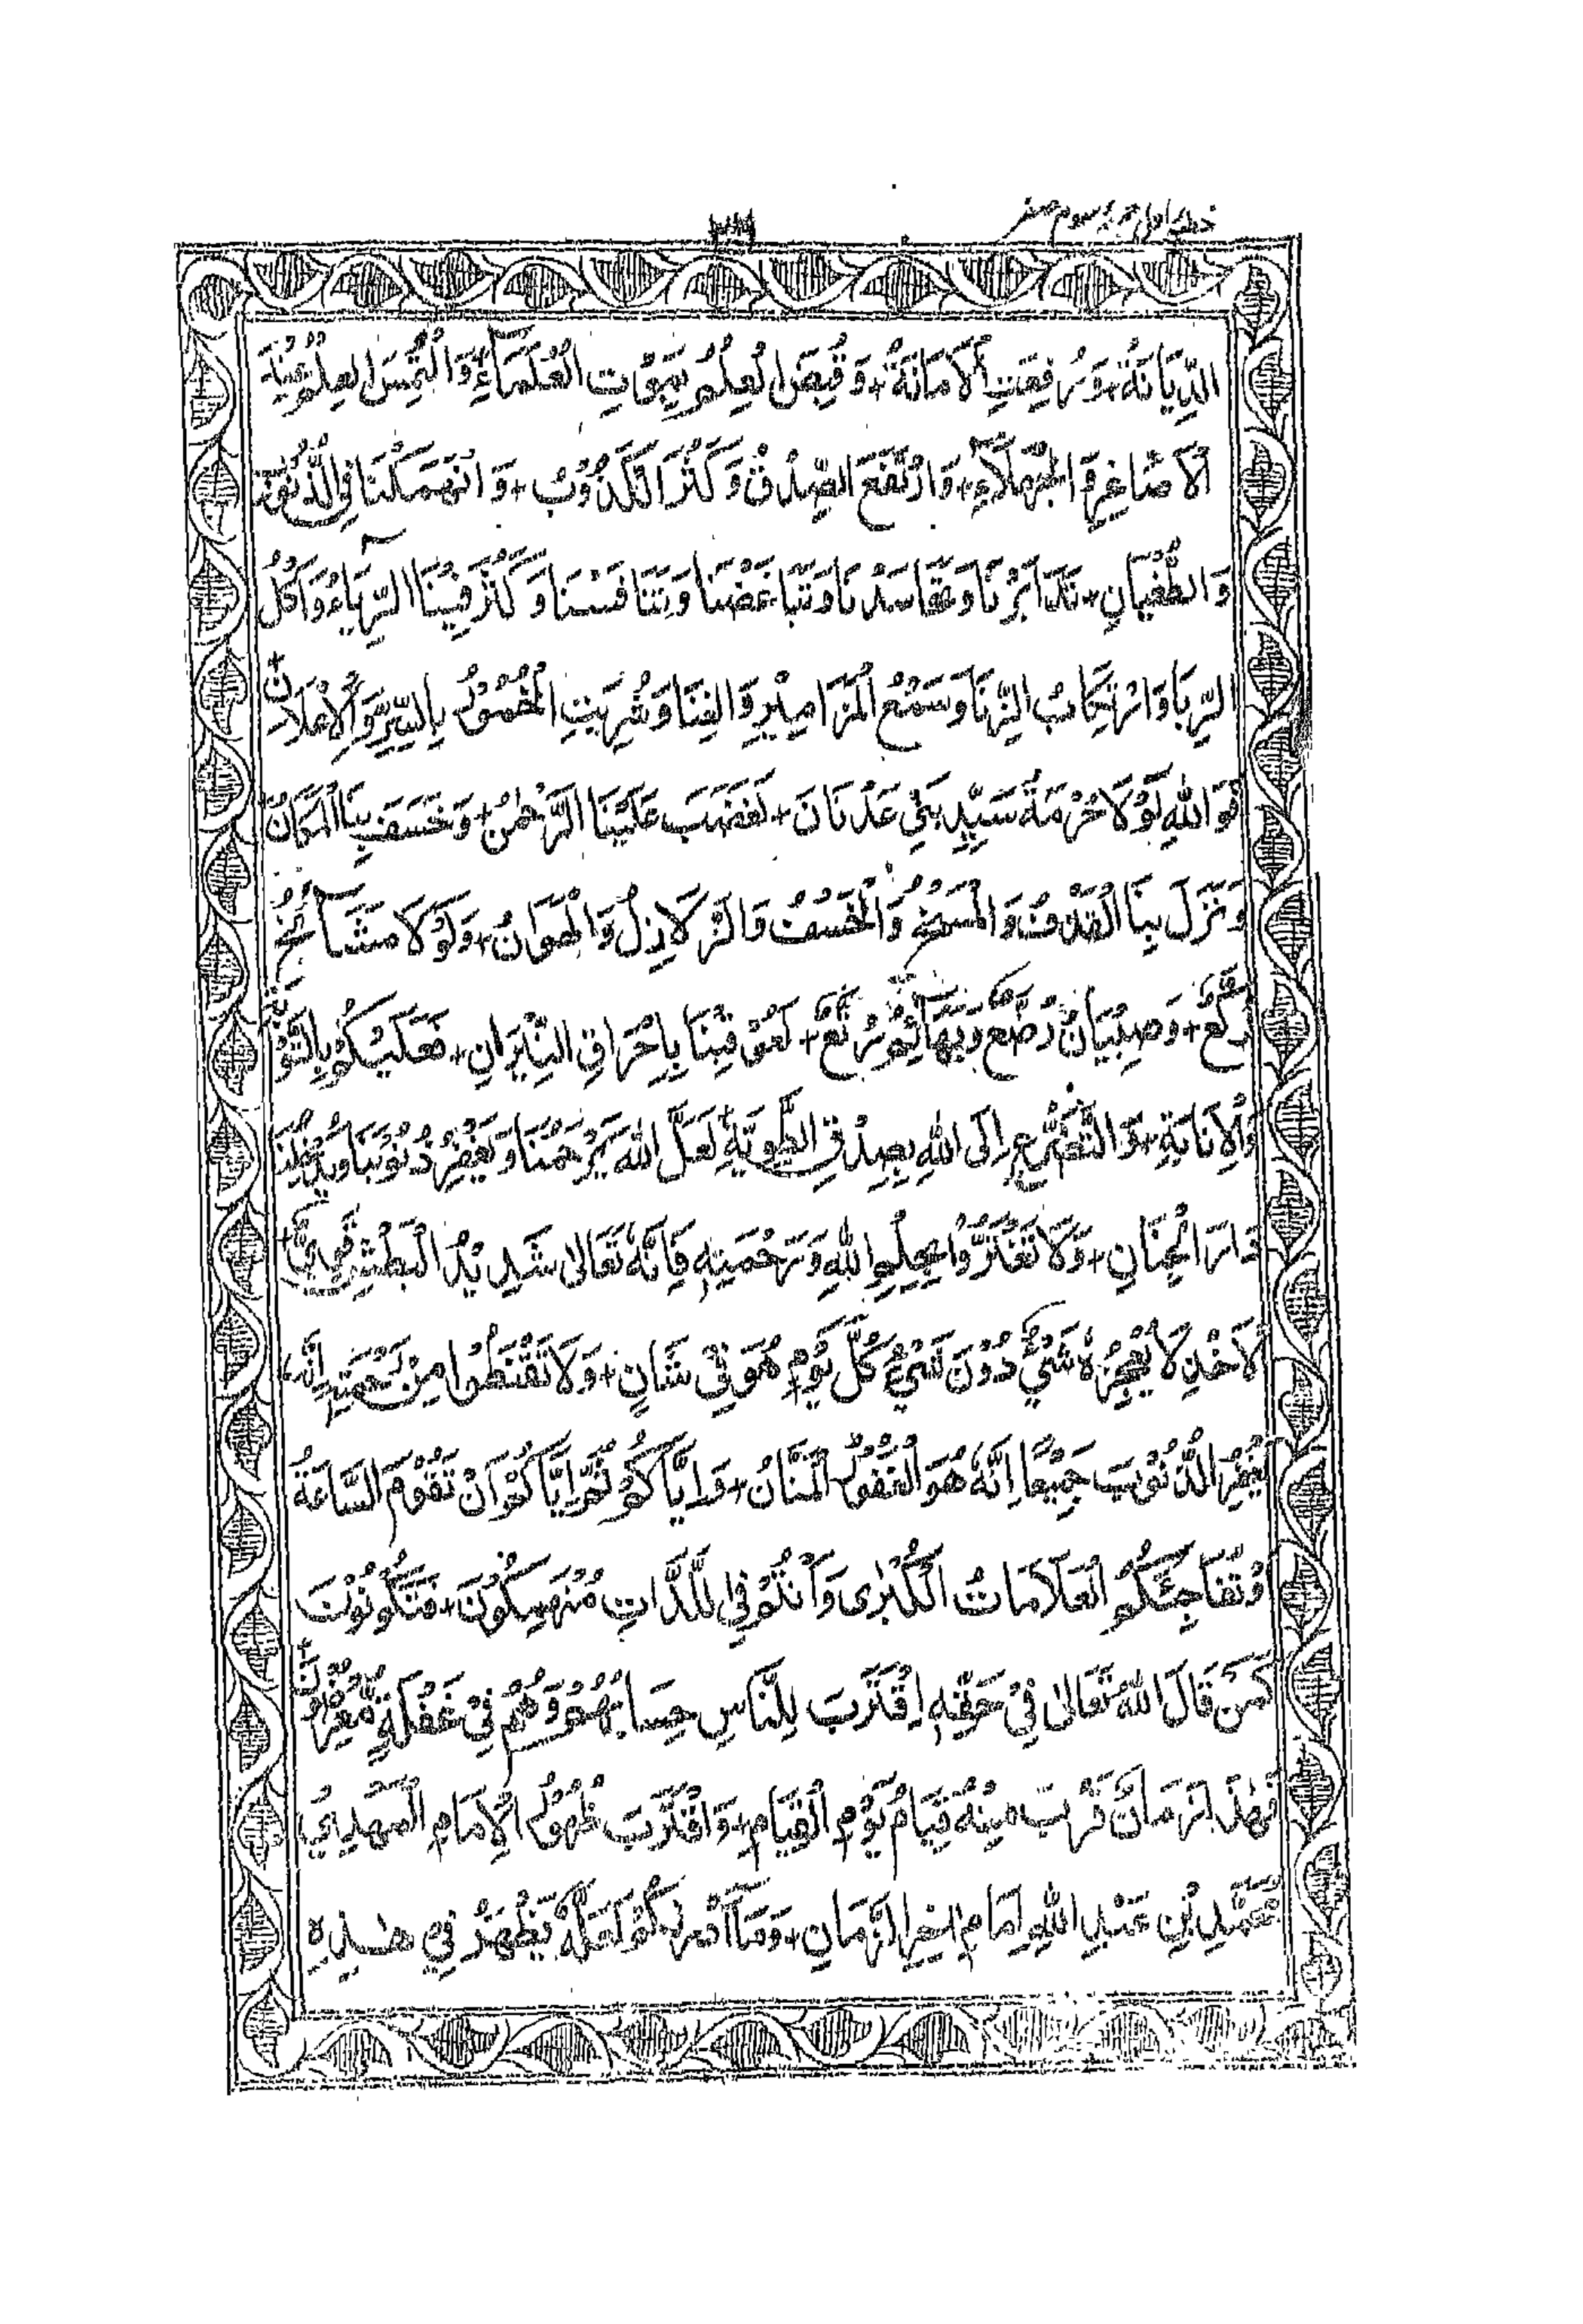 خطبه اول جمعه سوم صفر
الدِّيَانَةُ + وَرُفِعَتِ الْاَمَانَةُ + وَقُبِضَ الْعِلْمُ بِمَوْتِ الْعُلَمَآءِ وَالْتُمِسَ الْعِلْمُ عِنْدَ
الْاَصَاغِرِ وَ الْجُهَلَآءِ + وَارْتَفَعَ الصِّدْقُ وَكَثُرَ الْكَذُوْبُ + وَانْهَمَكْنَا فِي الذُّنُوْبِ
وَالطُّغْيَانِ + تَدَابَرْنَا وَتَحَاسَدْنَا وَتَبَاغَضْنَا وَتَنَافَسْنَا وَكَثُرَ فِيْنَا الرِّيَاءُ وَاَكْلُ
الرِّبَا وَارْتِكَابُ الزِّنَا وَسَمْعُ الْمَزَامِيْرِ وَالْغِنَا وَشُرِبَتِ الْخُمُوْرُ بِالسِّرِّ وَالْاِعْلَانِ +
فَوَاللهِ لَوْلَا حُرْمَةُ سَيِّدِ بَنِيْ عَدْنَانَ + لَغَضِبَ عَلَيْنَا الرَّحْمٰنُ + وَخَسَفَ بِنَا الْمَكَانُ
وَنَزَلَ بِنَا الْقَذْفُ وَالْمَسْخُ وَالْخَسْفُ وَالزَّلَازِلُ وَالْهَوَانُ + وَلَوْلَا مَشَآئِخُ
رُكَّعٌ + وَصِبْيَانٌ رُضَّعٌ وَبَهَآئِمُ رُتَّعٌ + لَعُوْقِبْنَا بِاِحْرَاقِ النِّيْرَانِ + فَعَلَيْكُمْ بِالتَّوْبَةِ
وَالْاِنَابَةِ + وَالتَّضَرُّعِ اِلَى اللهِ بِصِدْقِ الطَّوِيَّةِ + لَعَلَّ اللهَ يَرْحَمُنَا وَيَغْفِرُ ذُنُوْبَنَا وَيُدْخِلُنَا
دَارَ الْجِنَانِ + وَلَا تَغْتَرُّوْا بِحِلْمِ اللهِ وَرَحْمَتِهٖ فَاِنَّهٗ تَعَالٰى شَدِيْدُ الْبَطْشِ قَوِيُّ +
الْاَخْذِ لَا يُعْجِزُهٗ شَيْءٌ دُوْنَ شَيْءٍ كُلَّ يَوْمٍ هُوَ فِيْ شَانٍ + وَلَا تَقْنَطُوْا مِنْ رَحْمَتِهٖ اِنَّهٗ
يَغْفِرُ الذُّنُوْبَ جَمِيْعًا اِنَّهٗ هُوَ الْغَفُوْرُ الْمَنَّانُ + وَاِيَّاكُمْ ثُمَّ اِيَّاكُمْ اَنْ تَقُوْمَ السَّاعَةُ
اَوْ تُفَاجِئَكُمُ الْعَلَامَاتُ الْكُبْرٰى وَاَنْتُمْ فِي اللَّذَّاتِ مُنْهَمِكُوْنَ + فَتَكُوْنُوْنَ
كَمَنْ قَالَ اللهُ تَعَالٰى فِيْ حَقِّهٖ اِقْتَرَبَ لِلنَّاسِ حِسَابُهُمْ وَهُمْ فِيْ غَفْلَةٍ مُّعْرِضُوْنَ +
فَهٰذَا زَمَانٌ قَرُبَ مِنْهُ قِيَامُ يَوْمِ الْقِيَامِ + وَاقْتَرَبَ ظُهُوْرُ الْاِمَامِ الْمَهْدِيِّ
مُحَمَّدِ بْنِ عَبْدِ اللهِ اِمَامِ اٰخِرِ الزَّمَانِ + وَمَآ اَدْرٰىكُمْ لَعَلَّهٗ يَظْهَرُ فِيْ هٰذِهِ